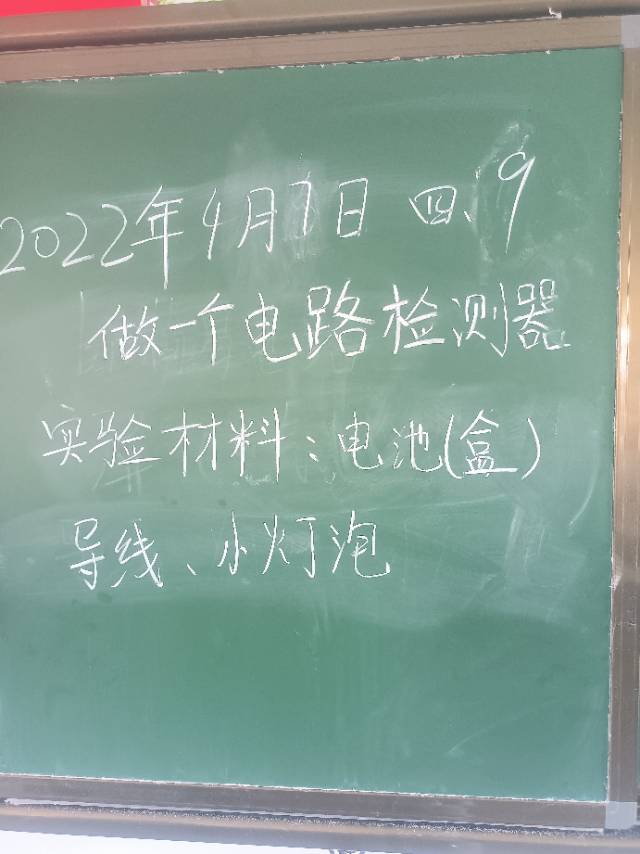 2022年4月7日 四、9
做一个电路检测器
实验材料:电池(盒)
导线、小灯泡